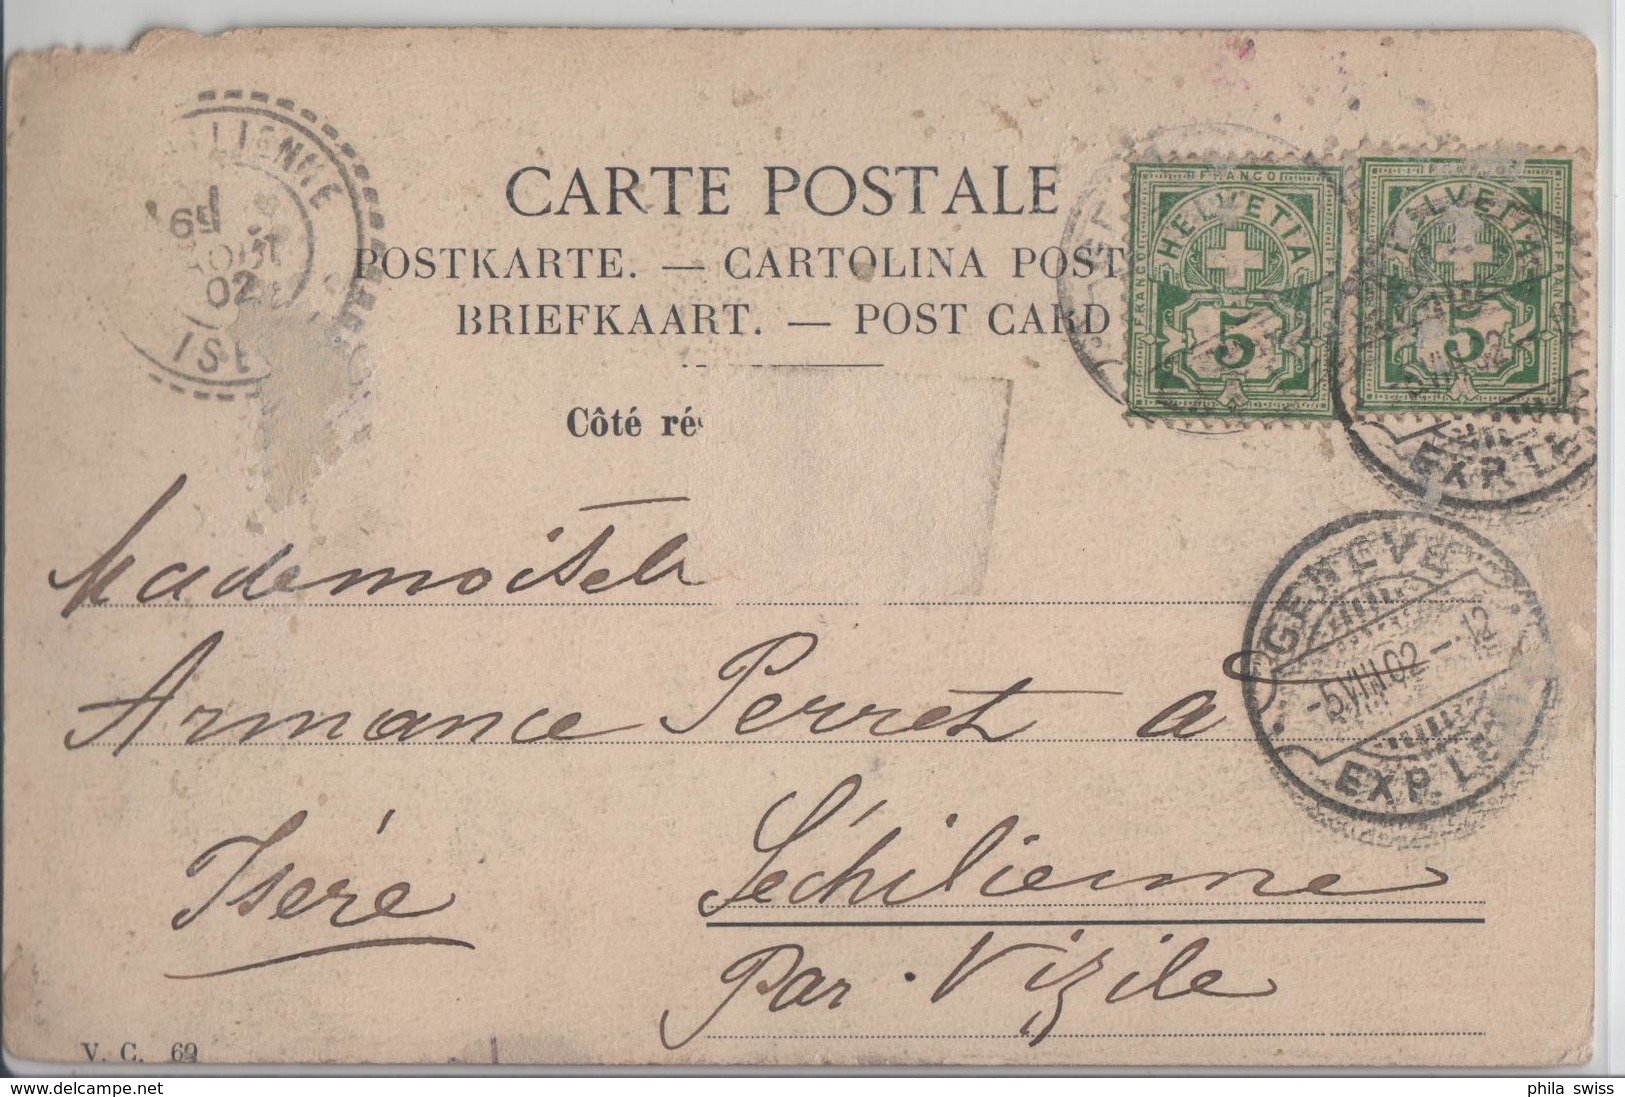 CARTE POSTALE
POSTKARTE. — CARTOLINA POST
BRIEFKAART. — POST CARD
Côté ré
FRANCO
HELVETIA
FRANCO
5
HELVETIA
FRANCO
5
-5.VIII.02
EXP. LE
GENÈVE
-5.VIII.02-12
EXP. LE
LIENNE
AOUT
02
ISE
Mademoiselle
Armance Perret a
Séchilienne
Isère
Par Vizile
V. C. 69
www.delcampe.net
phila_swiss